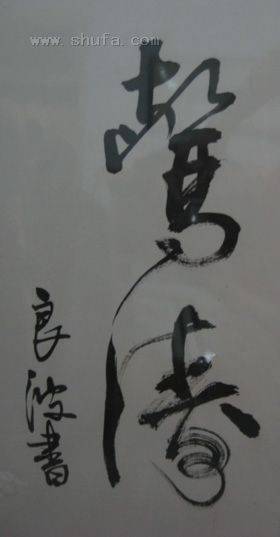 www.shufa.com
驚濤
良波書